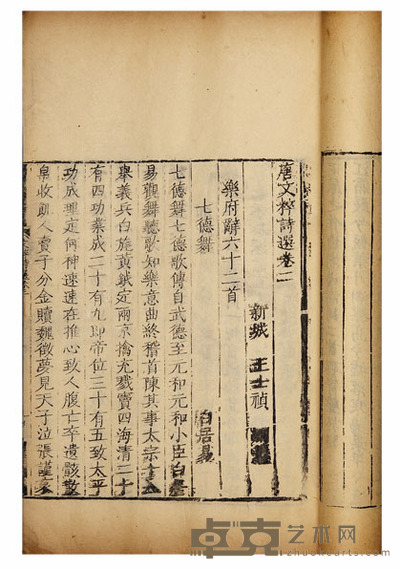 唐文粹詩選卷二
新城 王士禎
樂府辭六十二首
七德舞 白居易
七德舞七德歌傳自武德至元和元和小臣白
易觀舞聽歌知樂意曲終稽首陳其事太宗
舉義兵白旄黃鉞定兩京擒充戮竇四海清二十
有四功業成二十有九即帝位三十有五致太平
功成理定何神速速在推心致人腹亡卒遺骸散
帛收飢人賣子分金贖魏徵夢見天子泣張謹哀
卓克艺术网
zhuokearts.com